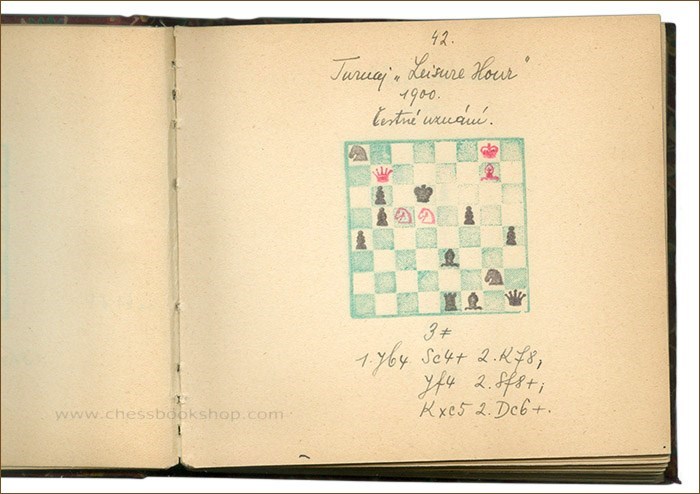 42.
Turnaj „Leisure Hour"
1900.
Čestné uznání.
3 ǂ
1. Jb4 Sc4+ 2. Kf8,
Jf4 2. Sf8+;
Kxc5 2. Dc6+.
www.chessbookshop.com